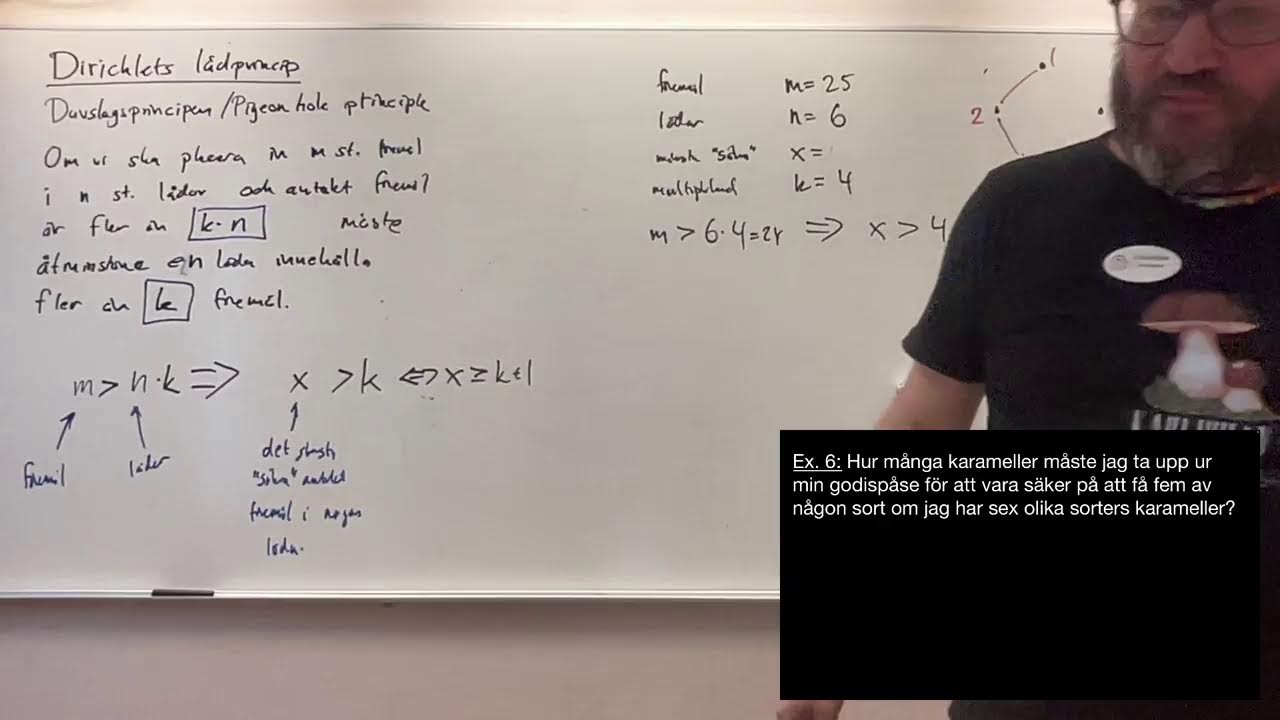 Dirichlets lådprincip
Duvslagsprincipen / Pigeon hole principle
Om vi ska placera in m st. föremål
i n st. lådor och antalet föremål
är fler än k·n måste
åtminstone en låda innehålla
fler än k föremål.
m > n·k ⇒ x > k ⇔ x ≥ k+1
föremål
lådor
det
"säkra" antalet
föremål i någon
låda.
föremål m = 25
lådor n = 6
"säkra" x =
k = 4
m > 6·4=24 ⇒ x > 4
1
2
Ex. 6: Hur många karameller måste jag ta upp ur
min godispåse för att vara säker på att få fem av
någon sort om jag har sex olika sorters karameller?